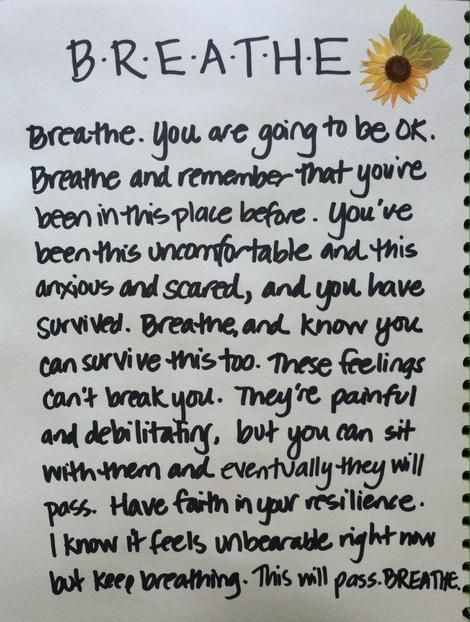 B·R·E·A·T·H·E
Breathe. You are going to be OK.
Breathe and remember that you've
been in this place before. You've
been this uncomfortable and this
anxious and scared, and you have
survived. Breathe, and know you
can survive this too. These feelings
can't break you. They're painful
and debilitating, but you can sit
with them and eventually they will
pass. Have faith in your resilience.
I know it feels unbearable right now
but keep breathing. This will pass. BREATHE.